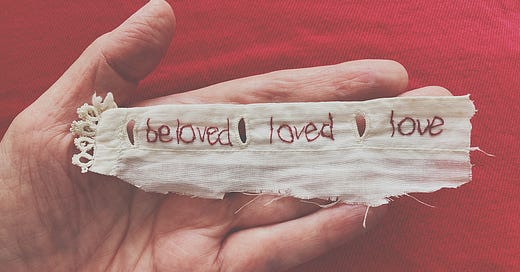 beloved loved love